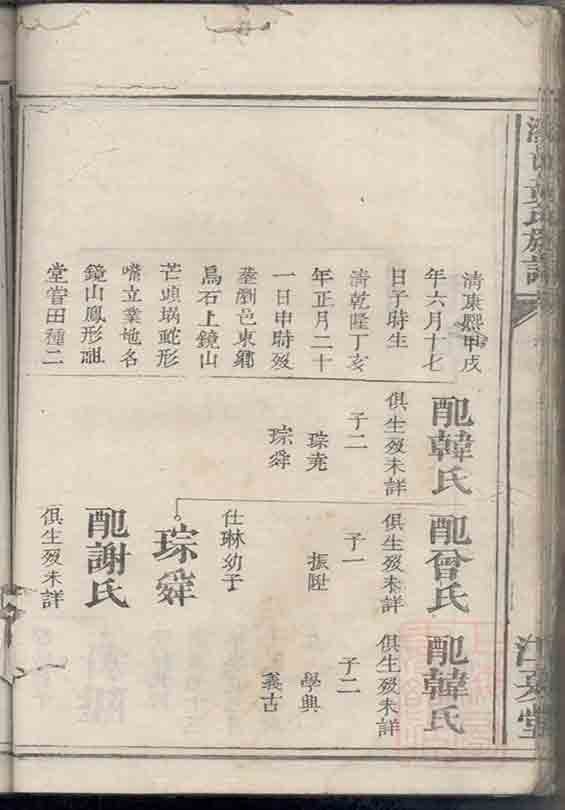 黃氏族譜
江夏堂
清康熙甲戌
年六月十七
日子時生
清乾隆丁亥
年正月二十
一日申時歿
塟瀏邑東鄉
烏石上鏡山
芒頭堝乾形
嘴立業地名
鏡山鳳形祖
堂嘗田種二
配韓氏
俱生歿未詳
子二
琮堯
琮舜
配曾氏
俱生歿未詳
子一
振陞
仕琳幼子
琮舜
配謝氏
俱生歿未詳
配韓氏
俱生歿未詳
子二
學典
義古